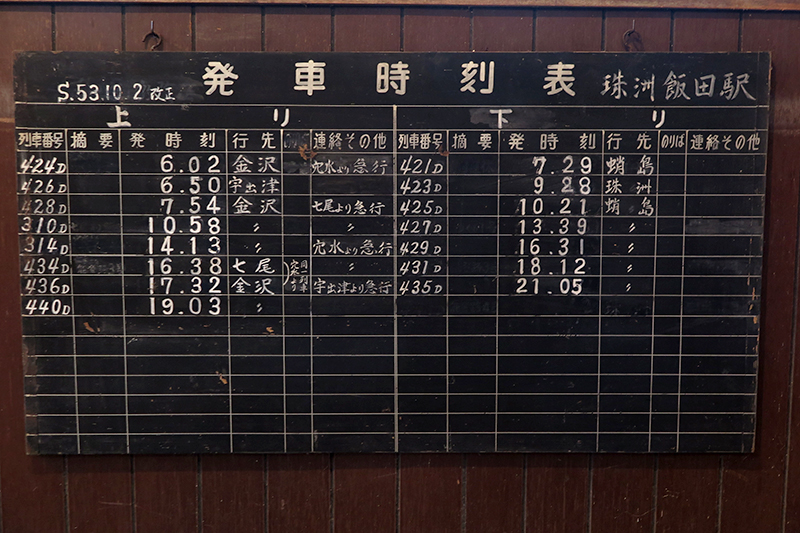 S.53.10.2改正 発車時刻表 珠洲飯田駅
上り 下り
列車番号 摘要 発時刻 行先 連絡その他 列車番号 摘要 発時刻 行先 のりば 連絡その他
424D 6.02 金沢 穴水より急行 421D 7.29 蛸島
426D 6.50 宇出津 423D 9.28 珠洲
428D 7.54 金沢 七尾より急行 425D 10.21 蛸島
310D 10.58 〃 427D 13.39 〃
314D 14.13 〃 穴水より急行 429D 16.31 〃
434D 16.38 七尾 〃 431D 18.12 〃
436D 17.32 金沢 宇出津より急行 435D 21.05 〃
440D 19.03 〃